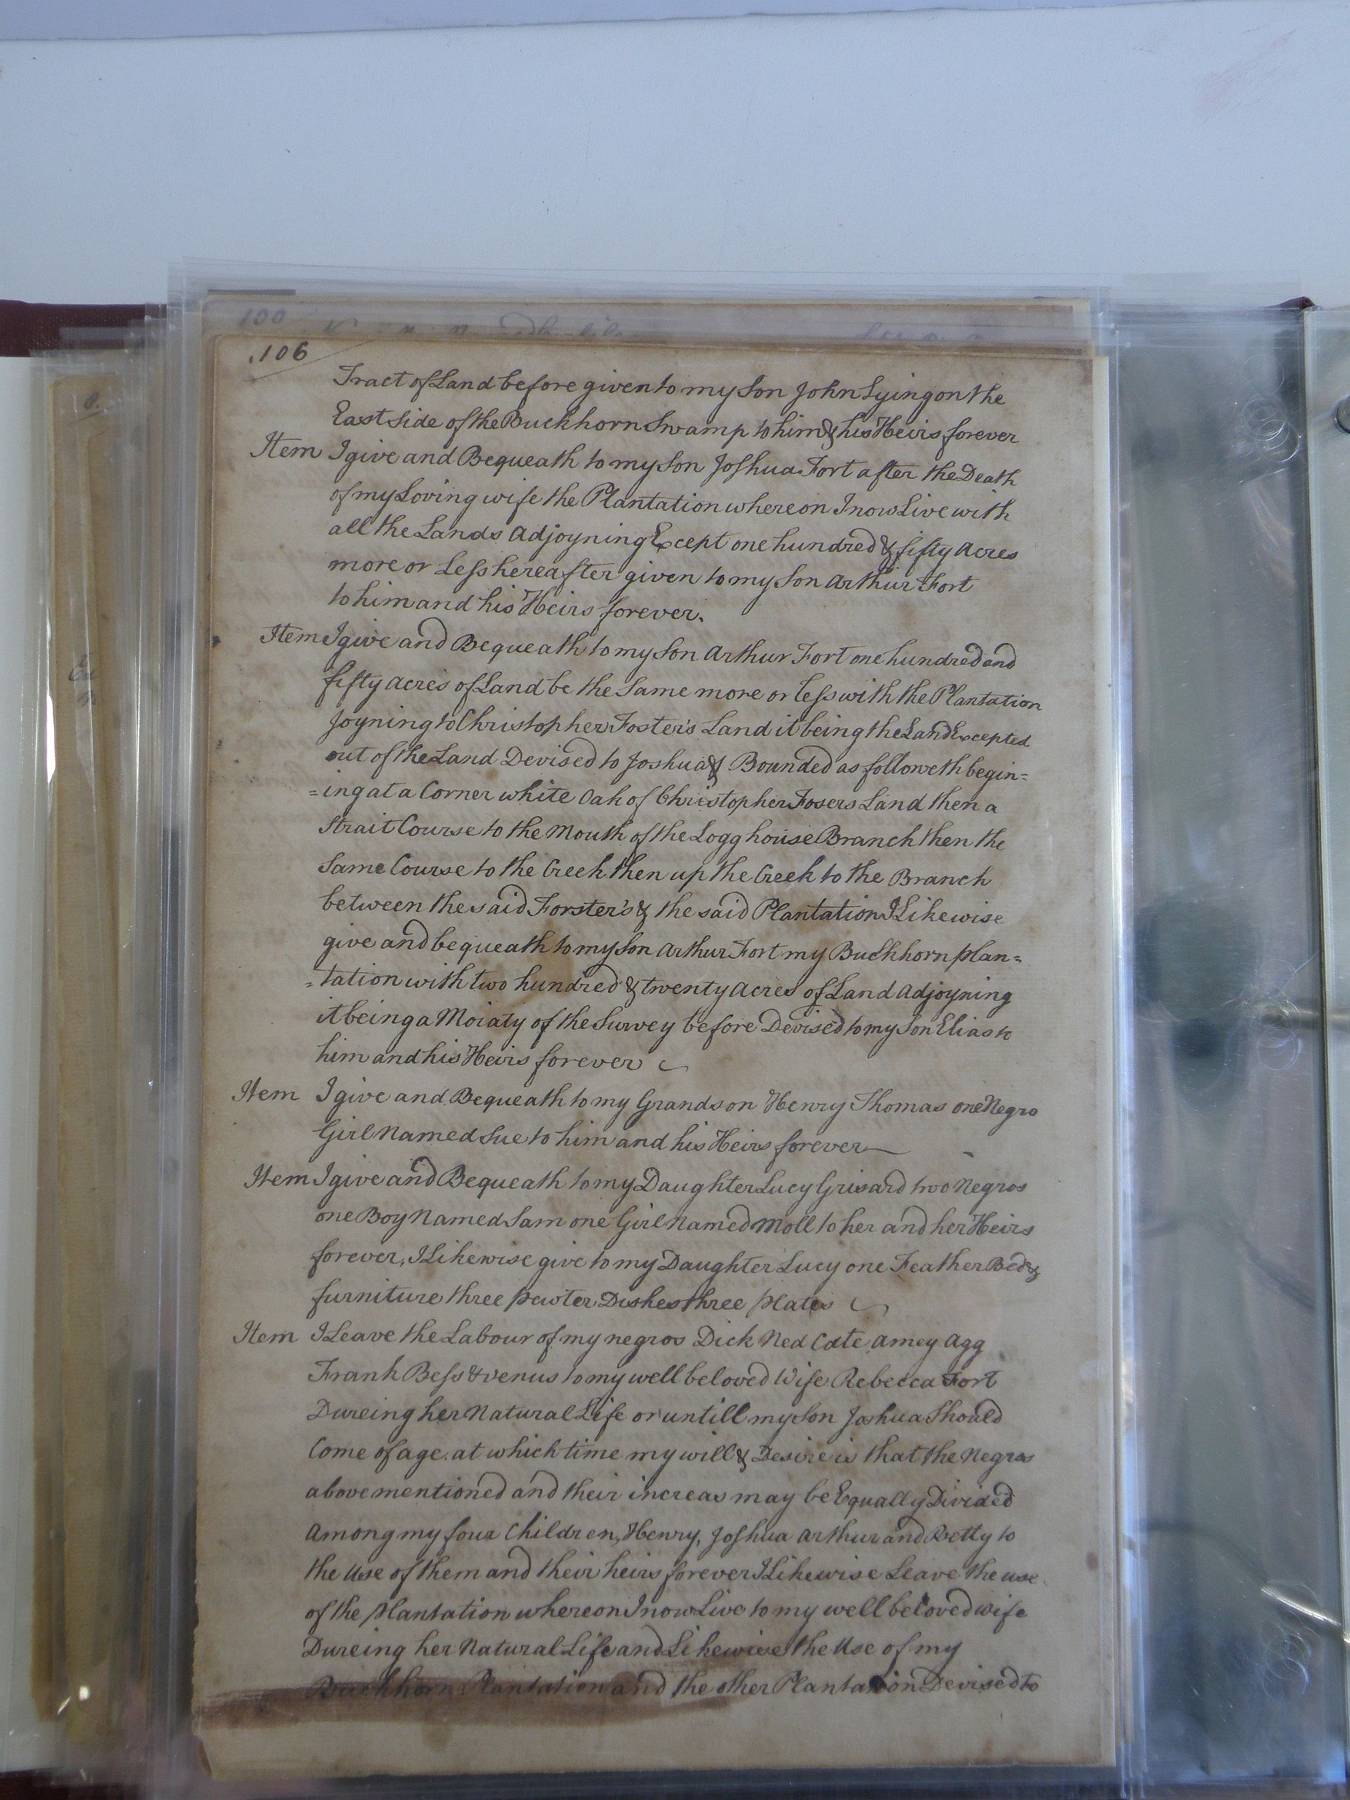 106
Tract of Land before given to my Son John Lying on the
East side of the Buckhorn Swamp to him & his Heirs forever
Item I give and Bequeath to my Son Joshua Fort after the Death
of my Loving wife the Plantation whereon I now Live with
all the Lands Adjoyning Except one hundred & fifty Acres
more or Less hereafter given to my Son Arthur Fort
to him and his Heirs forever.
Item I give and Bequeath to my Son Arthur Fort one hundred and
fifty Acres of Land be the Same more or less with the Plantation
Joyning to Christopher Foster's Land it being the Land Excepted
out of the Land Devised to Joshua & Bounded as followeth begin=
=ing at a Corner white Oak of Christopher Fosers Land then a
Strait Course to the Mouth of the Logg house Branch then the
Same Course to the Creek then up the Creek to the Branch
between the said Forster's & the said Plantation I Likewise
give and bequeath to my Son Arthur Fort my Buckhorn plan=
=tation with two hundred & twenty Acres of Land Adjoyning
it being a Moiaty of the Survey before Devised to my Son Elias to
him and his Heirs forever
Item I give and Bequeath to my Grandson Henry Thomas one Negro
Girl Named Sue to him and his Heirs forever
Item I give and Bequeath to my Daughter Lucy Grisard two Negros
one Boy Named Sam one Girl Named Moll to her and her Heirs
forever, I Likewise give to my Daughter Lucy one Feather Bed &
furniture three pewter Dishes three plates
Item I Leave the Labour of my negros Dick Ned Cate Amey Agg
Frank Bess & venus to my well beloved Wife Rebecca Fort
Dureing her Natural Life or untill my Son Joshua Should
Come of age at which time my will & Desire is that the Negros
above mentioned and their increas may be Equally Divided
Among my four Children, Henry, Joshua Arthur and Betty to
the use of them and their heirs forever I Likewise Leave the use
of the plantation whereon I now Live to my well beloved wife
Dureing her Natural Life and Likewise the Use of my
Buckhorn Plantation and the other Plantation Devised to